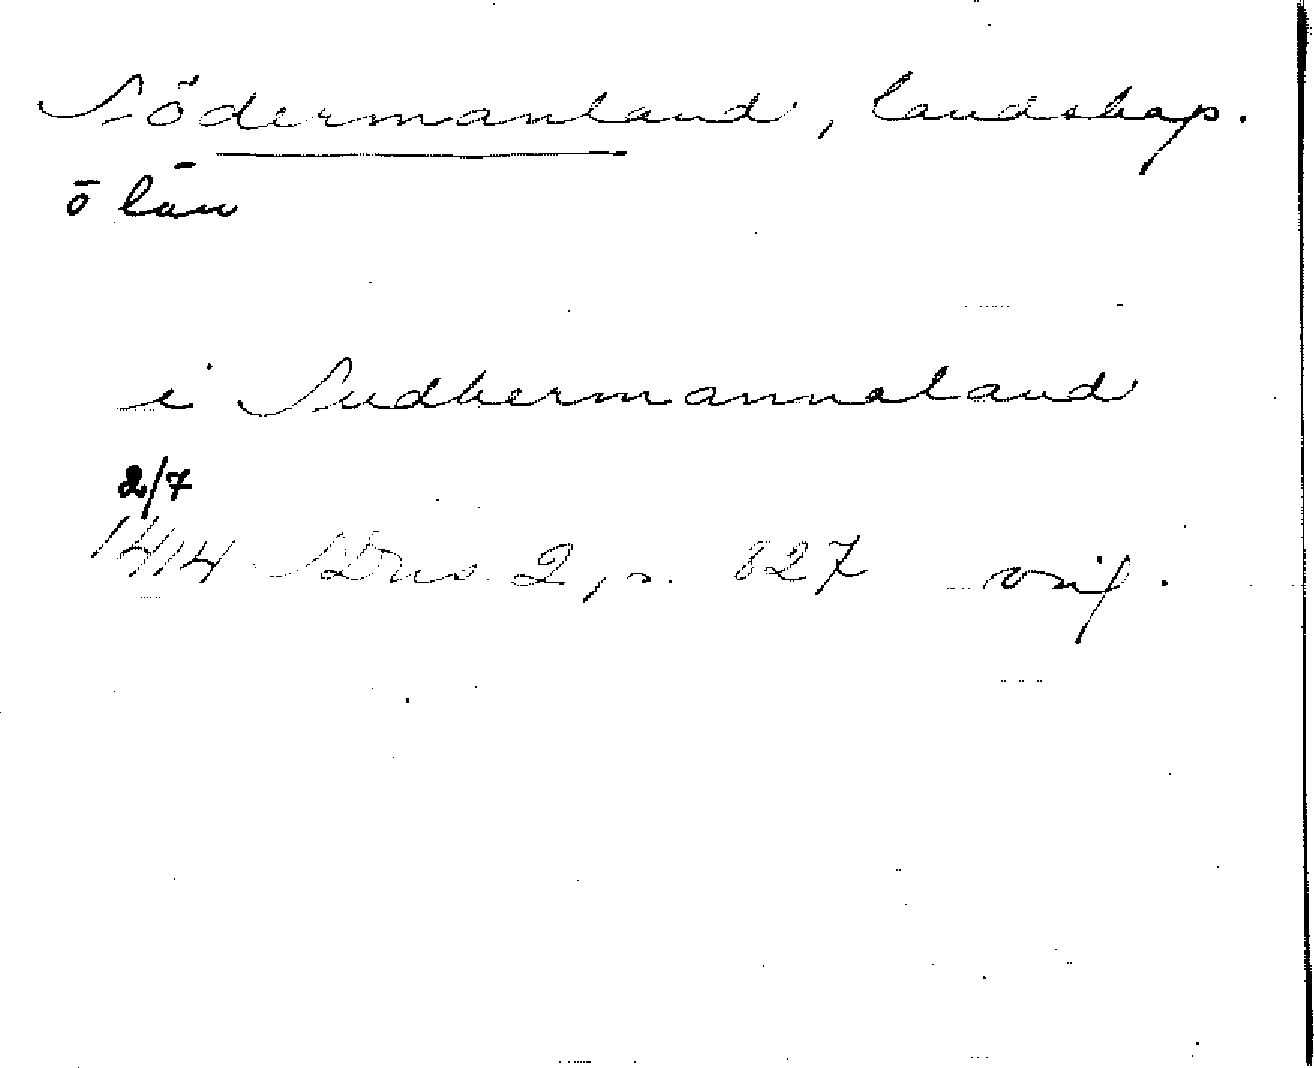 Södermanland, landskap.
o län
i Sudhermannaland
2/7
1414 SDns 2, s. 827 orig.